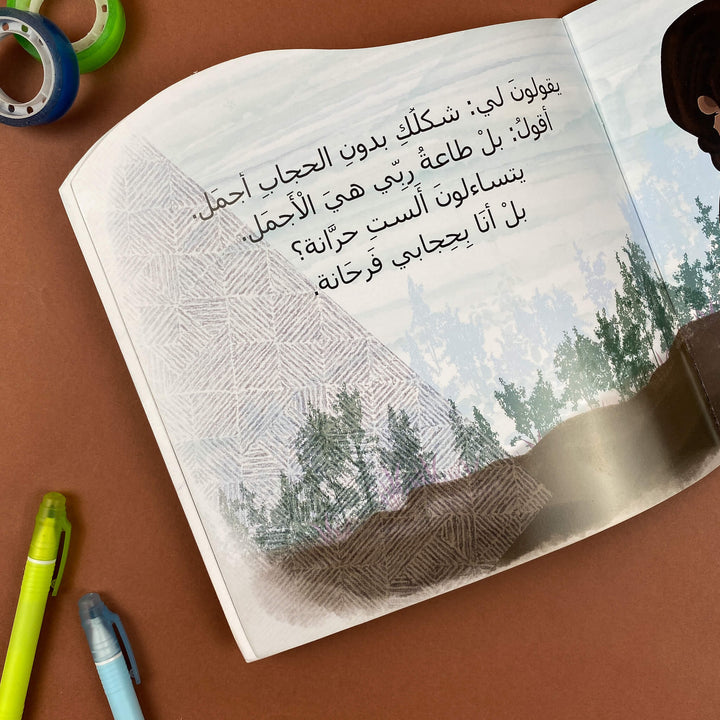 يقولونَ لي: شكلُكِ بدونِ الحجابِ أجمَل.
أقولُ: بلْ طاعةُ ربّي هيَ الْأَجمَل.
يتساءلونَ أَلستِ حرَّانة؟
بلْ أنَا بِحِجابي فَرحَانة.